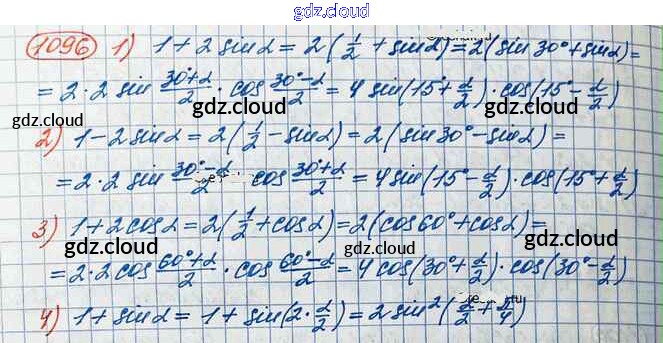 gdz.cloud
1096 1) 1 + 2 sin α = 2(1/2 + sin α) = 2(sin 30° + sin α) =
= 2 · 2 sin (30° + α)/2 · cos (30° − α)/2 = 4 sin(15° + α/2) · cos(15° − α/2)
gdz.cloud gdz.cloud gdz.cloud
2) 1 − 2 sin α = 2(1/2 − sin α) = 2(sin 30° − sin α) =
= 2 · 2 sin (30° − α)/2 · cos (30° + α)/2 = 4 sin(15° − α/2) · cos(15° + α/2)
3) 1 + 2 cos α = 2(1/2 + cos α) = 2(cos 60° + cos α) =
gdz.cloud gdz.cloud gdz.cloud
= 2 · 2 cos (60° + α)/2 · cos (60° − α)/2 = 4 cos(30° + α/2) · cos(30° − α/2)
4) 1 + sin α = 1 + sin(2 · α/2) = 2 sin²(α/2 + π/4)